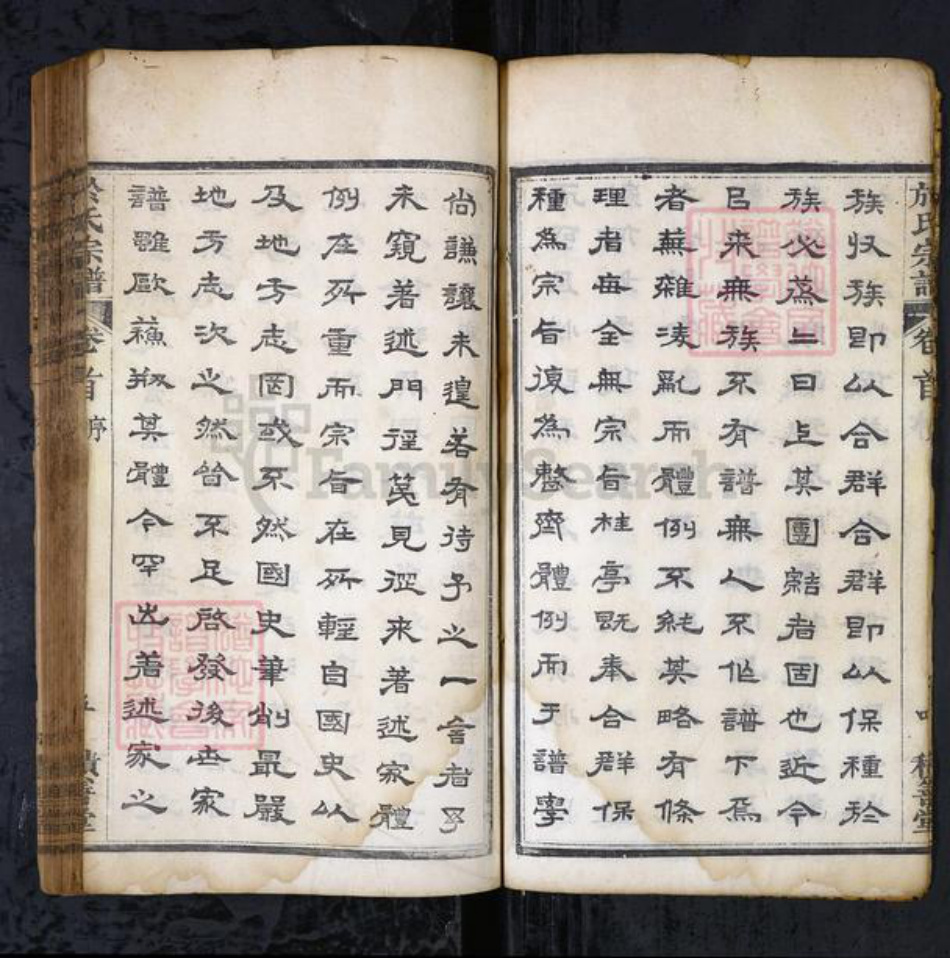 族收族即以合群合群即以保種於
族必蒸上曰上其團結者固也近今
㠯來無族不有譜無人不作譜下焉
者蕪雜凌亂而體例不純其略有條
理者每全無宗旨桂亭既奉合群保
種為宗旨復為整齊體例而于譜學
於氏宗譜 卷首
尚謙讓未遑若有待予之一言者予
未窺著述門徑莫見從來著述家體
例在所重而宗旨在所輕自國史以
及地方志固或不然國史筆削最嚴
地方志次之然皆不足啟發後世家
譜雖歐蘇刱其體今罕出著述家之
於氏宗譜 卷首 序
FamilySearch